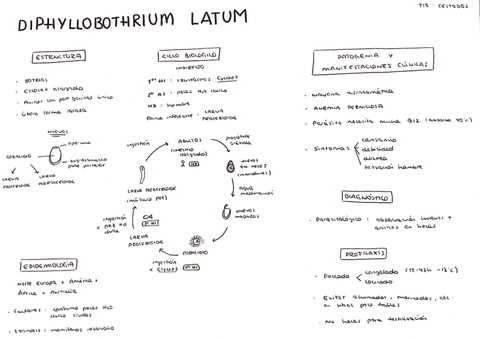 DIPHYLLOBOTHRIUM LATUM
T15: CESTODOS
ESTRUCTURA
· BOTRIAS
· ESCOLEX ALARGADO
· ANILLOS CON PORO GENITAL ÚNICO
· ÚTERO FORMA ROSETA
HUEVOS
OPÉRCULO
CORACIDIO
LARVA PROCERCOIDE
LARVA PLEROCERCOIDE
EPIDEMIOLOGÍA
NORTE EUROPA + AMÉRICA +
ÁFRICA + AUSTRALIA
· FACTORES: CONSUMO PECES H2O
DULCE CRUDOS
· ZOONOSIS: MAMÍFEROS RESERVORIO
CICLO BIOLÓGICO
INDIRECTO
1er HI: CRUSTÁCEOS CYCLOPS
2º HI: PECES H2O DULCE
HD: HOMBRE
FORMA INFESTANTE: LARVA
PLEROCERCOIDE
INGESTIÓN
ADULTOS
(INTESTINO
DELGADO)
HD
HUEVOS
EN HECES
(INMADUROS)
AGUA
HUEVOS
MADUROS
CORACIDIO
INGESTIÓN
x CYCLOPS
1er HI
LARVA
PROCERCOIDE
INGESTIÓN
x PEZ H2O
DULCE
2º HI
LARVA PLEROCERCOIDE
(MÚSCULO PEZ)
PATOGENIA Y
MANIFESTACIONES CLÍNICAS
· MAYORÍA ASINTOMÁTICA
· ANEMIA PERNICIOSA
· PARÁSITO NECESITA MUCHA B12
· SÍNTOMAS
CANSANCIO
DEBILIDAD
DIARREA
SENSACIÓN HAMBRE
DIAGNÓSTICO
· PARASITOLÓGICO: OBSERVACIÓN HUEVOS +
ANILLOS EN HECES
PROFILAXIS
· PESCADO
CONGELADO
COCINADO
· EVITAR AHUMADOS, MARINADOS, ETC.
· NO HECES PARA FERTILIZACIÓN